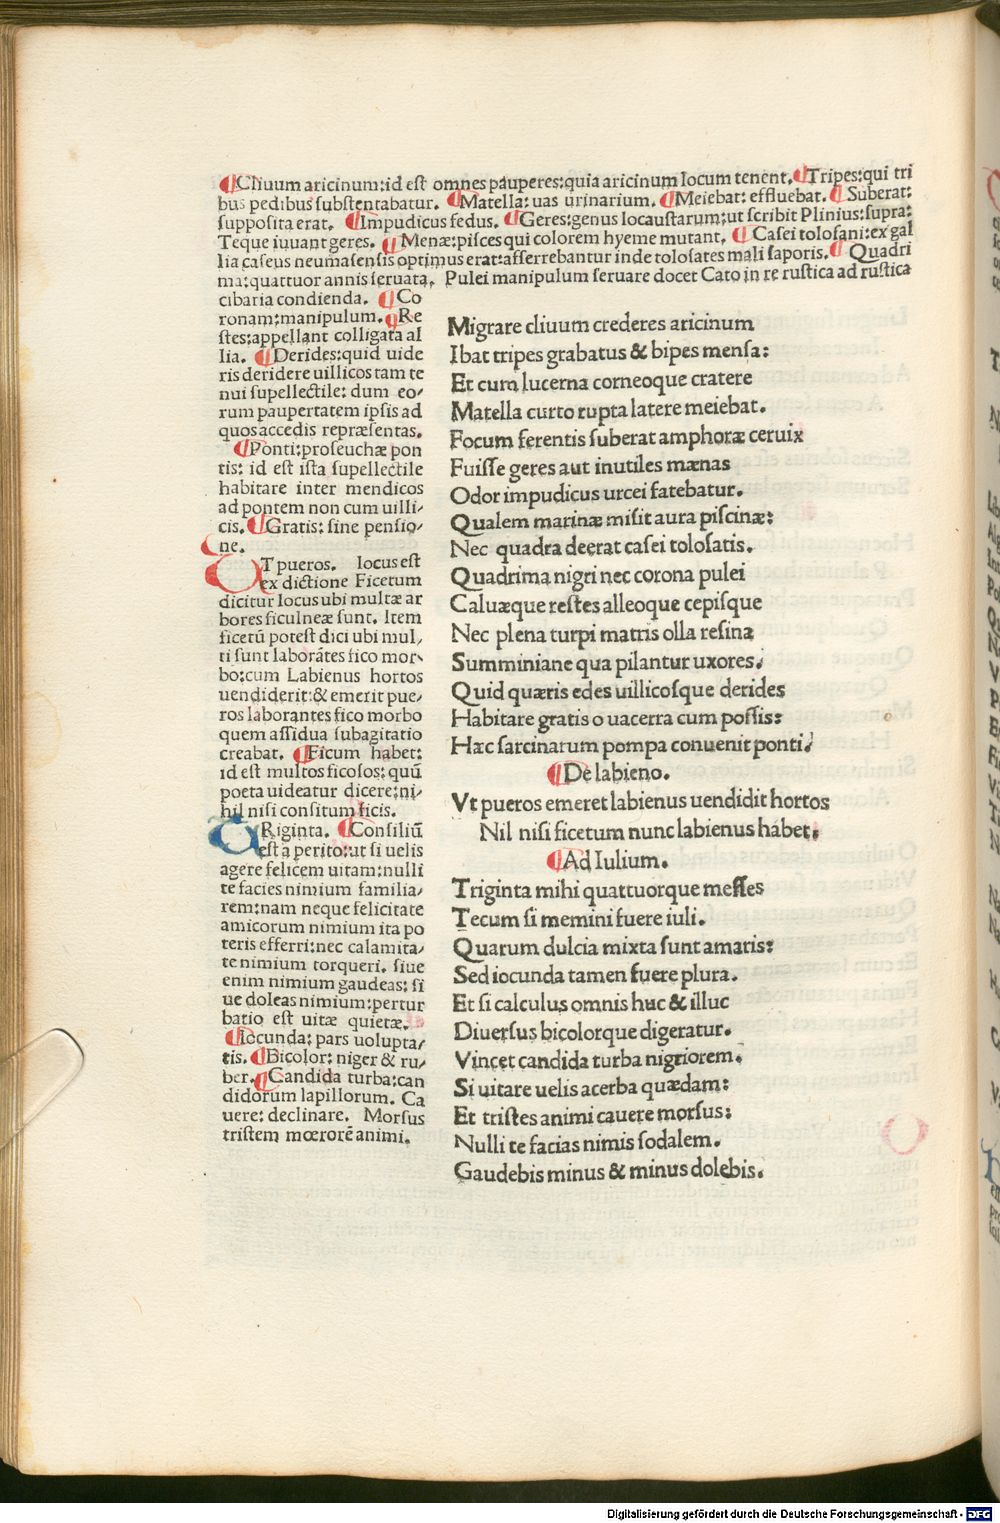 ¶Cliuum aricinum:id est omnes pauperes:quia aricinum locum tenent.¶Tripes:qui tri
bus pedibus substentabatur. ¶Matella: uas urinarium. ¶Meiebat: effluebat. ¶Suberat:
supposita erat. ¶Impudicus fedus. ¶Geres:genus locaustarum:ut scribit Plinius:supra:
Teque iuuant geres. ¶Menæ:pisces qui colorem hyeme mutant. ¶Casei tolosani:ex gal
lia caseus neumasensis optimus erat:afferrebantur inde tolosates mali saporis.¶Quadri
ma:quattuor annis seruata. Pulei manipulum seruare docet Cato in re rustica ad rustica
cibaria condienda. ¶Co
ronam:manipulum. ¶Re
stes:appellant colligata al
lia. ¶Derides:quid uide
ris deridere uillicos tam te
nui supellectile: dum eo/
rum paupertatem ipsis ad
quos accedis repræsentas.
¶Ponti:proseuchæ pon
tis: id est ista supellectile
habitare inter mendicos
ad pontem non cum uilli/
cis. ¶Gratis: sine pensio/
ne.
VT pueros. Iocus est
ex dictione Ficetum
dicitur locus ubi multæ ar
bores ficulneæ sunt. Item
ficetū potest dici ubi mul/
ti sunt laborātes fico mor/
bo:cum Labienus hortos
uendiderit:& emerit pue/
ros laborantes fico morbo
quem assidua subagitatio
creabat. ¶Ficum habet:
id est multos ficosos: quū
poeta uideatur dicere:ni/
hil nisi consitum ficis.
TRiginta. ¶Consiliū
est a perito:ut si uelis
agere felicem uitam:nulli
te facies nimium familia/
rem:nam neque felicitate
amicorum nimium ita po
teris efferri:nec calamita/
te nimium torqueri. siue
enim nimium gaudeas: si
ue doleas nimium:pertur
batio est uitæ quietæ.
¶Iocunda: pars uolupta/
tis. ¶Bicolor: niger & ru/
ber. ¶Candida turba:can
didorum lapillorum. Ca
uere: declinare. Morsus
tristem mœrorē animi.
Migrare cliuum crederes aricinum
Ibat tripes grabatus & bipes mensa:
Et cum lucerna corneoque cratere
Matella curto rupta latere meiebat.
Focum ferentis suberat amphoræ ceruix
Fuisse geres aut inutiles mænas
Odor impudicus urcei fatebatur.
Qualem marinæ misit aura piscinæ:
Nec quadra deerat casei tolosatis.
Quadrima nigri nec corona pulei
Caluæque restes alleoque cepisque
Nec plena turpi matris olla resina
Summiniane qua pilantur uxores.
Quid quæris edes uillicosque derides
Habitare gratis o uacerra cum possis:
Hæc sarcinarum pompa conuenit ponti.
¶De labieno.
Vt pueros emeret labienus uendidit hortos
Nil nisi ficetum nunc labienus habet.
¶Ad Iulium.
Triginta mihi quattuorque messes
Tecum si memini fuere iuli.
Quarum dulcia mixta sunt amaris:
Sed iocunda tamen fuere plura.
Et si calculus omnis huc & illuc
Diuersus bicolorque digeratur.
Vincet candida turba nigriorem.
Si uitare uelis acerba quædam:
Et tristes animi cauere morsus:
Nulli te facias nimis sodalem.
Gaudebis minus & minus dolebis.
Digitalisierung gefördert durch die Deutsche Forschungsgemeinschaft - DFG